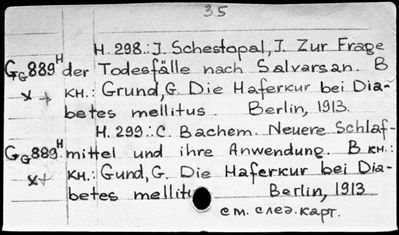 35
H. 298.: J. Schestopal, J. Zur Frage
GG889H der Todesfälle nach Salvarsan. В
кн.: Grund, G. Die Haferkur bei Dia-
betes mellitus. Berlin, 1913.
H. 299.: C. Bachem. Neuere Schlaf-
GG889H mittel und ihre Anwendung. В кн.:
кн.: Gund, G. Die Haferkur bei Dia-
betes mellit Berlin, 1913
см. след. карт.